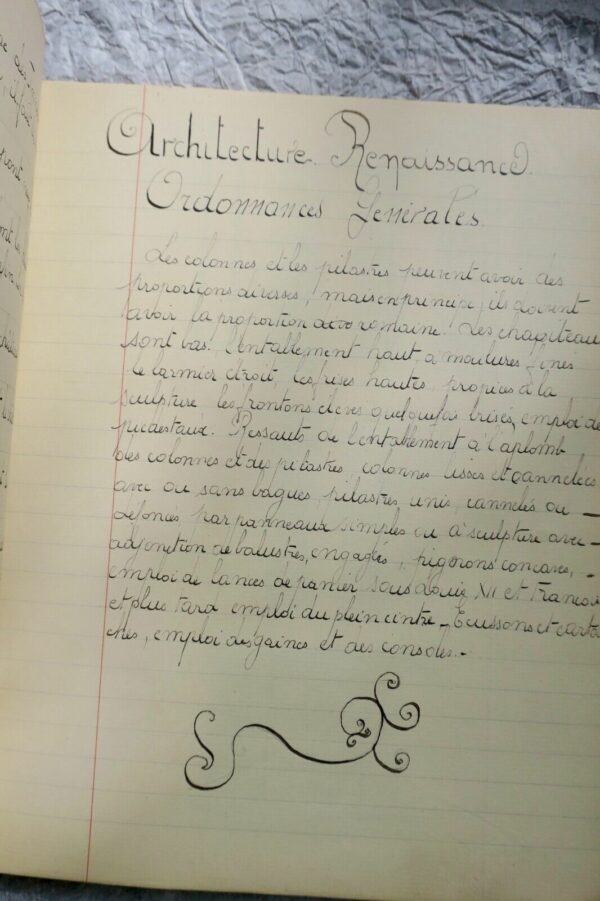 Architecture Renaissance.
Ordonnances Générales.
Les colonnes et les pilastres peuvent avoir des
proportions diverses, mais en principe, ils doivent
avoir la proportion romaine. Les chapiteaux
sont bas. L'entablement haut, a moulures fines
le larmier étroit, les frises hautes, propices à la
sculpture les frontons élevés quelquefois brisés, emploi de
piedestaux. Ressauts de l'entablement à l'aplomb
des colonnes et des pilastres, colonnes lisses et cannelées
avec ou sans bagues, pilastres unis, cannelés ou –
défoncés par panneaux simples ou à sculpture avec –
adjonction de balustres, engagés, pignons concaves, –
emploi de l'ances de panier sous Louis XII et François
et plus tard emploi du plein cintre – Ecussons et carto
ches, emploi des gaines et des consoles. –